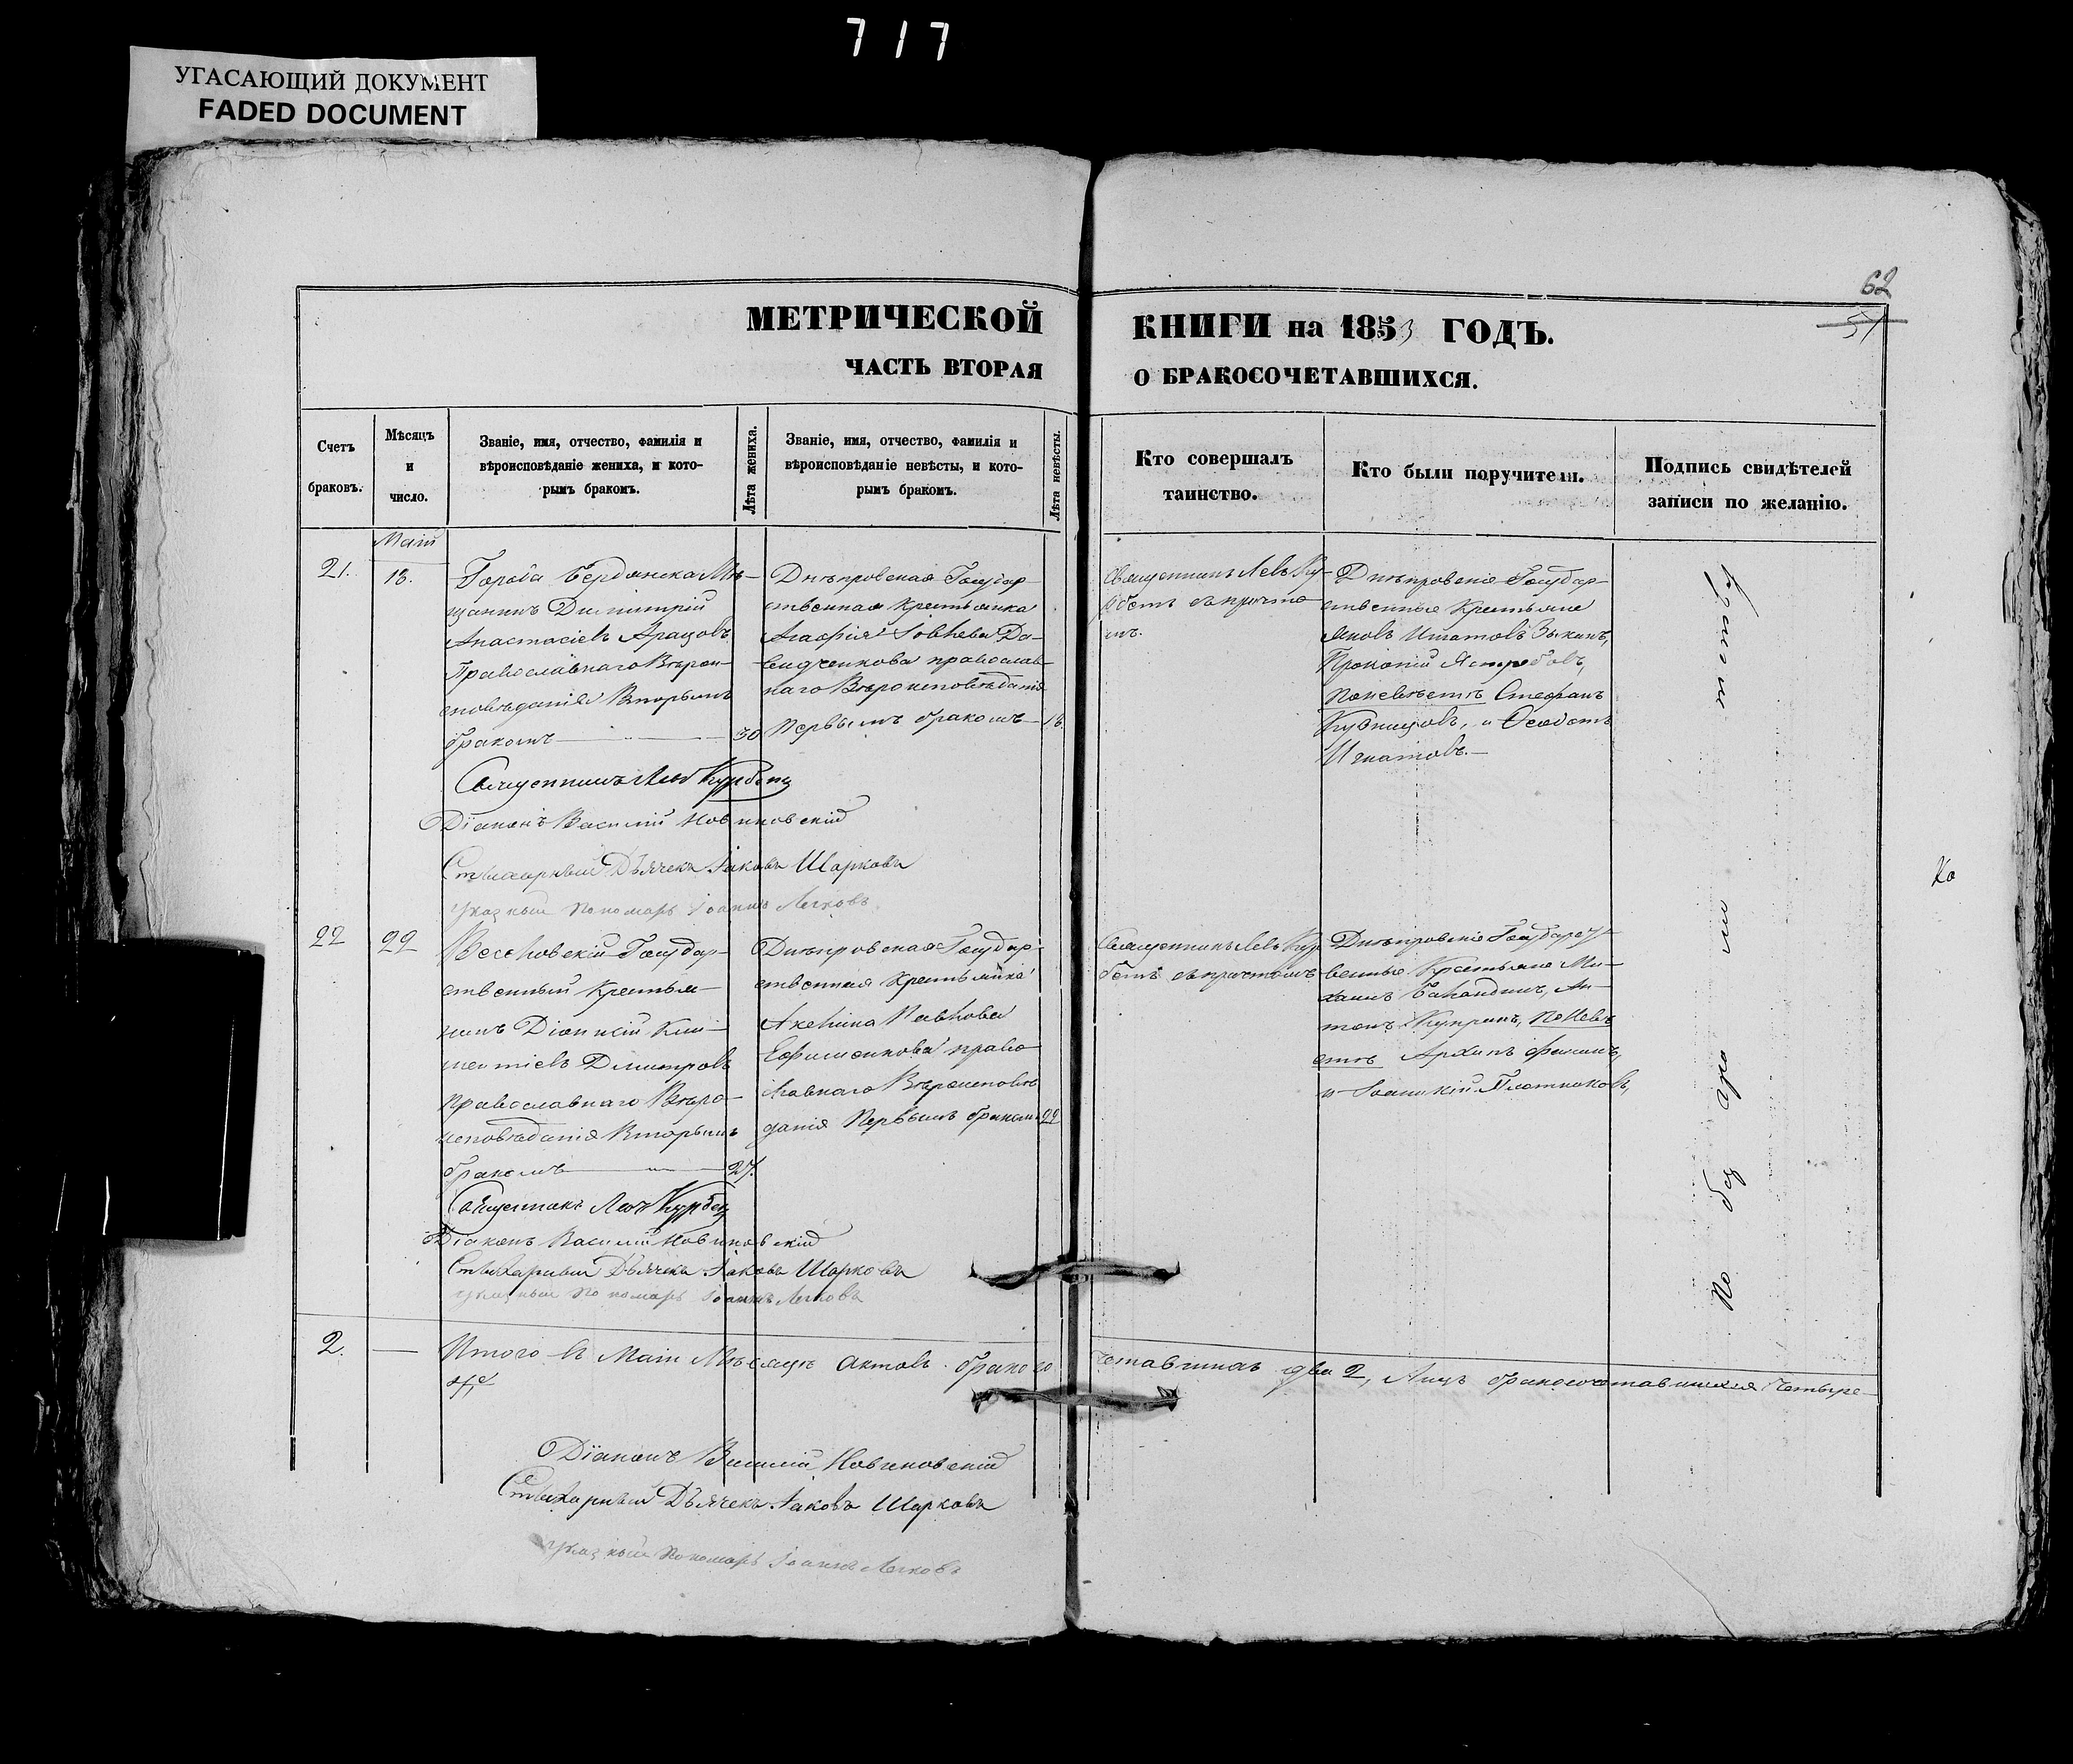 717
УГАСАЮЩИЙ ДОКУМЕНТ
FADED DOCUMENT
62
57
МЕТРИЧЕСКОЙ КНИГИ на 1853 ГОДЪ.
ЧАСТЬ ВТОРАЯ О БРАКОСОЧЕТАВШИХСЯ.
Счетъ
браковъ.
Мѣсяцъ
и
число.
Званіе, имя, отчество, фамилія и
вѣроисповѣданіе жениха, и кото-
рымъ бракомъ.
Лѣта жениха.
Званіе, имя, отчество, фамилія и
вѣроисповѣданіе невѣсты, и кото-
рымъ бракомъ.
Лѣта невѣсты.
Кто совершалъ
таинство.
Кто были поручители.
Подпись свидѣтелей
записи по желанію.
Маій
21.
18.
Города Бердянска Мѣ-
щанинъ Димитрій
Анастасіевъ
Православнаго Вѣрои-
сповѣданія Вторымъ
бракомъ
30
Днѣпровская Государ-
ственная Крестьянка
Агафія Іовлева Да-
видченкова православ-
наго Вѣроисповѣданія
Первымъ бракомъ
18.
Священникъ Левъ Ку-
рбетъ съ причто-
мъ.
Днѣпровскіе Государ-
ственные Крестьяне
Яковъ Игнатовъ Зыкинъ,
Прокопій Ястребовъ,
По невѣстѣ Стефанъ
Кубышовъ, и Феодотъ
Игнатовъ.
Священникъ Левъ Курбетъ
Діаконъ Василій Новиковскій
Стихарный Дьячекъ Іаковъ Шарковъ
Указный Пономарь Іоаннъ Легковъ
22
22
Веселовскій Государ-
ственный Крестья-
нинъ Діонисій Кли-
ментіевъ Димитровъ
православнаго Вѣро-
исповѣданія Вторымъ
бракомъ
27.
Днѣпровская Государ-
ственная Крестьянка
Акелина Павлова
Ефименкова право-
славнаго Вѣроисповѣ-
данія Первымъ бракомъ
22
Священникъ Левъ Кур-
бетъ съ причтомъ
Днѣпровскіе Государст-
венные Крестьяне Ми-
хаилъ Баландинъ, Ан-
тонъ Купринъ, По Невѣ-
стѣ Архипъ Фоминъ,
и Іоанникій Плотниковъ,
Священникъ Левъ Курбетъ
Діаконъ Василій Новиковскій
Стихарный Дьячекъ Іаковъ Шарковъ
Указный Пономарь Іоаннъ Легковъ
По без гра мо
Ко
2.
Итого въ Маіи Мѣсяцѣ актовъ бракосочетавшихся два 2, Лицъ бракосочетавшихся четыре
4,е
Діаконъ Василій Новиковскій
Стихарный Дьячекъ Іаковъ Шарковъ
Указный Пономарь Іоаннъ Легковъ